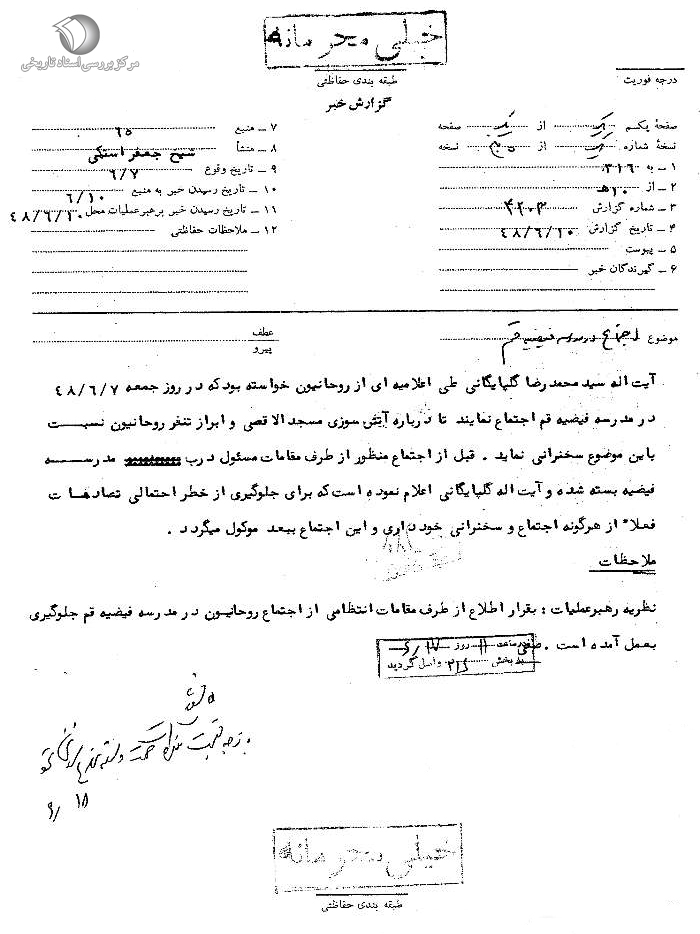 مرکز بررسی اسناد تاریخی
خیلی محرمانه
طبقه بندی حفاظتی
گزارش خبر
درجه فوریت
صفحهٔ یکم یک از یک صفحه
نسخهٔ شماره از نسخه
۱ ـ به ۳۱۶
۲ ـ از ۱۰ هـ
۳ ـ شماره گزارش ۴۲۰۳
۴ ـ تاریخ گزارش ۴۸/۶/۱۰
۵ ـ پیوست
۶ ـ گیرندگان خبر
۷ ـ منبع ۶۵
۸ ـ منشأ شیخ جعفر استکی
۹ ـ تاریخ وقوع ۶/۷
۱۰ ـ تاریخ رسیدن خبر به منبع ۶/۱۰
۱۱ ـ تاریخ رسیدن خبر برهبرعملیات محل ۴۸/۶/۱۰
۱۲ ـ ملاحظات حفاظتی
موضوع اجتماع در مدرسه فیضیه قم
عطف
پیرو
آیت اله سید محمد رضا گلپایگانی طی اعلامیه ای از روحانیون خواسته بود که در روز جمعه ۴۸/۶/۷
در مدرسه فیضیه قم اجتماع نمایند تا درباره آتش سوزی مسجد الاقصی و ابراز تنفر روحانیون نسبت
باین موضوع سخنرانی نماید . قبل از اجتماع منظور از طرف مقامات مسئول درب مدرسه
فیضیه بسته شده و آیت اله گلپایگانی اعلام نموده است که برای جلوگیری از خطر احتمالی تصادهات
فعلاً از هرگونه اجتماع و سخنرانی خودداری و این اجتماع ببعد موکول میگردد .
ملاحظات
نظریه رهبرعملیات : بقرار اطلاع از طرف مقامات انتظامی از اجتماع روحانیون در مدرسه فیضیه قم جلوگیری
بعمل آمده است .
در ساعت ۱۱ روز ۶/۱۷
به بخش ۳۱۶ واصل گردید
۶/۱۸
خیلی محرمانه
طبقه بندی حفاظتی